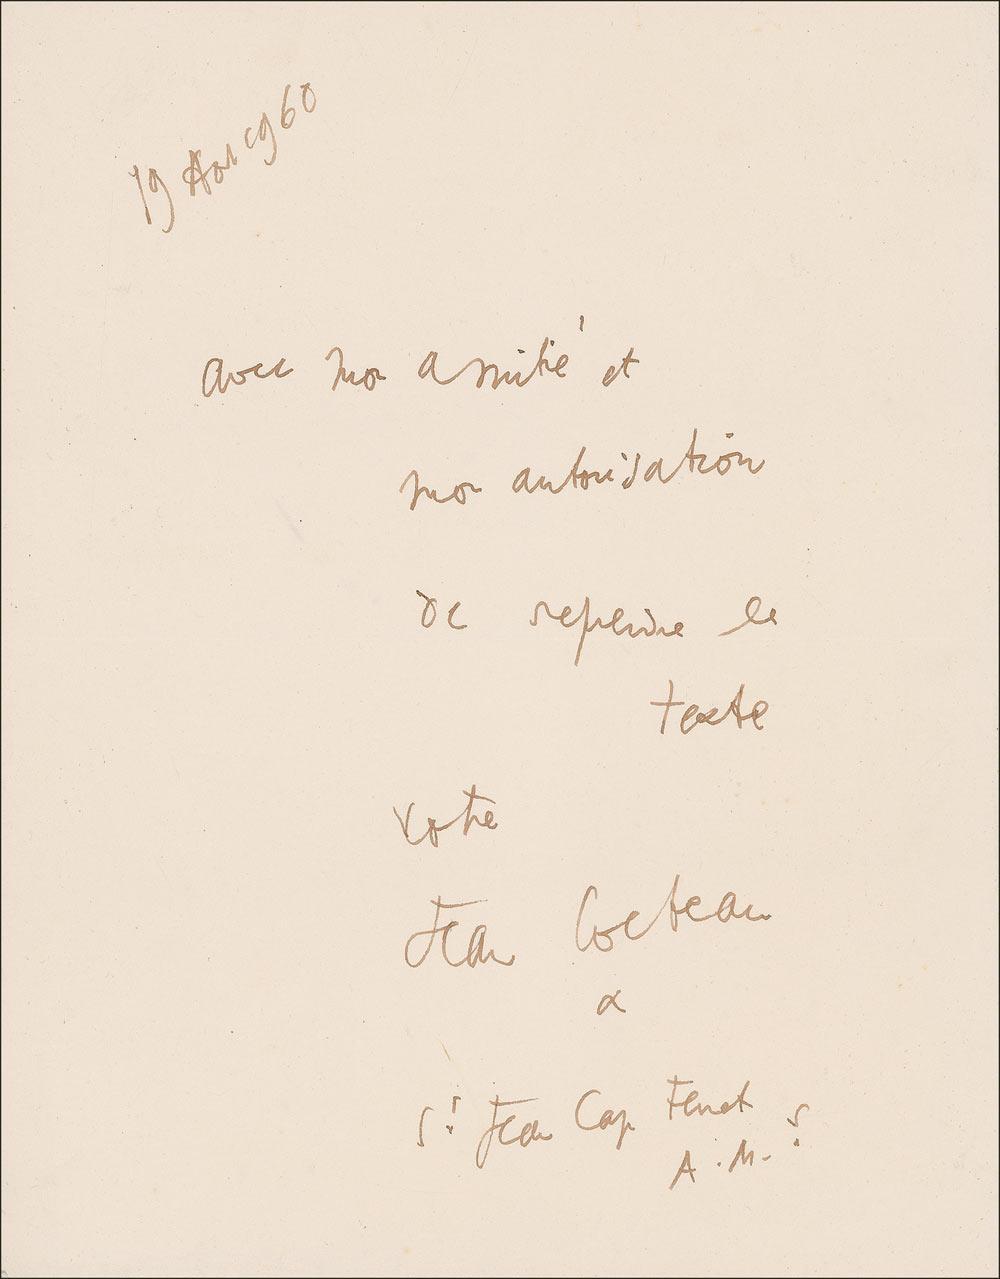 19 Août 1960
avec mon amitié et
mon autorisation
de reprendre le
texte
votre
Jean Cocteau
St Jean Cap Ferrat
A.M.